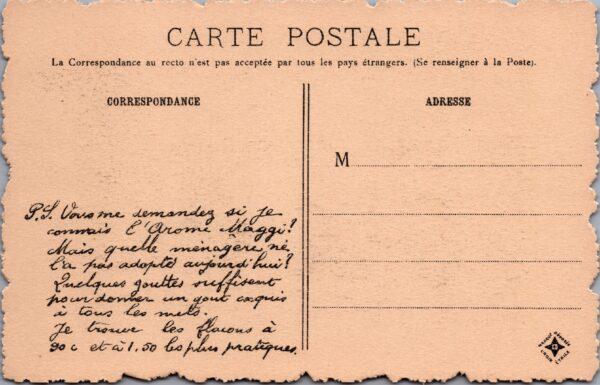 CARTE POSTALE
La Correspondance au recto n'est pas acceptée par tous les pays étrangers. (Se renseigner à la Poste).
CORRESPONDANCE
ADRESSE
M
P.S. Vous me demandez si je
connais l'Arome Maggi?
Mais quelle ménagère ne
l'a pas adopté aujourd'hui?
Quelques gouttes suffisent
pour donner un gout exquis
à tous les mets.
Je trouve les flacons à
90 c et à 1,50 les plus pratiques.